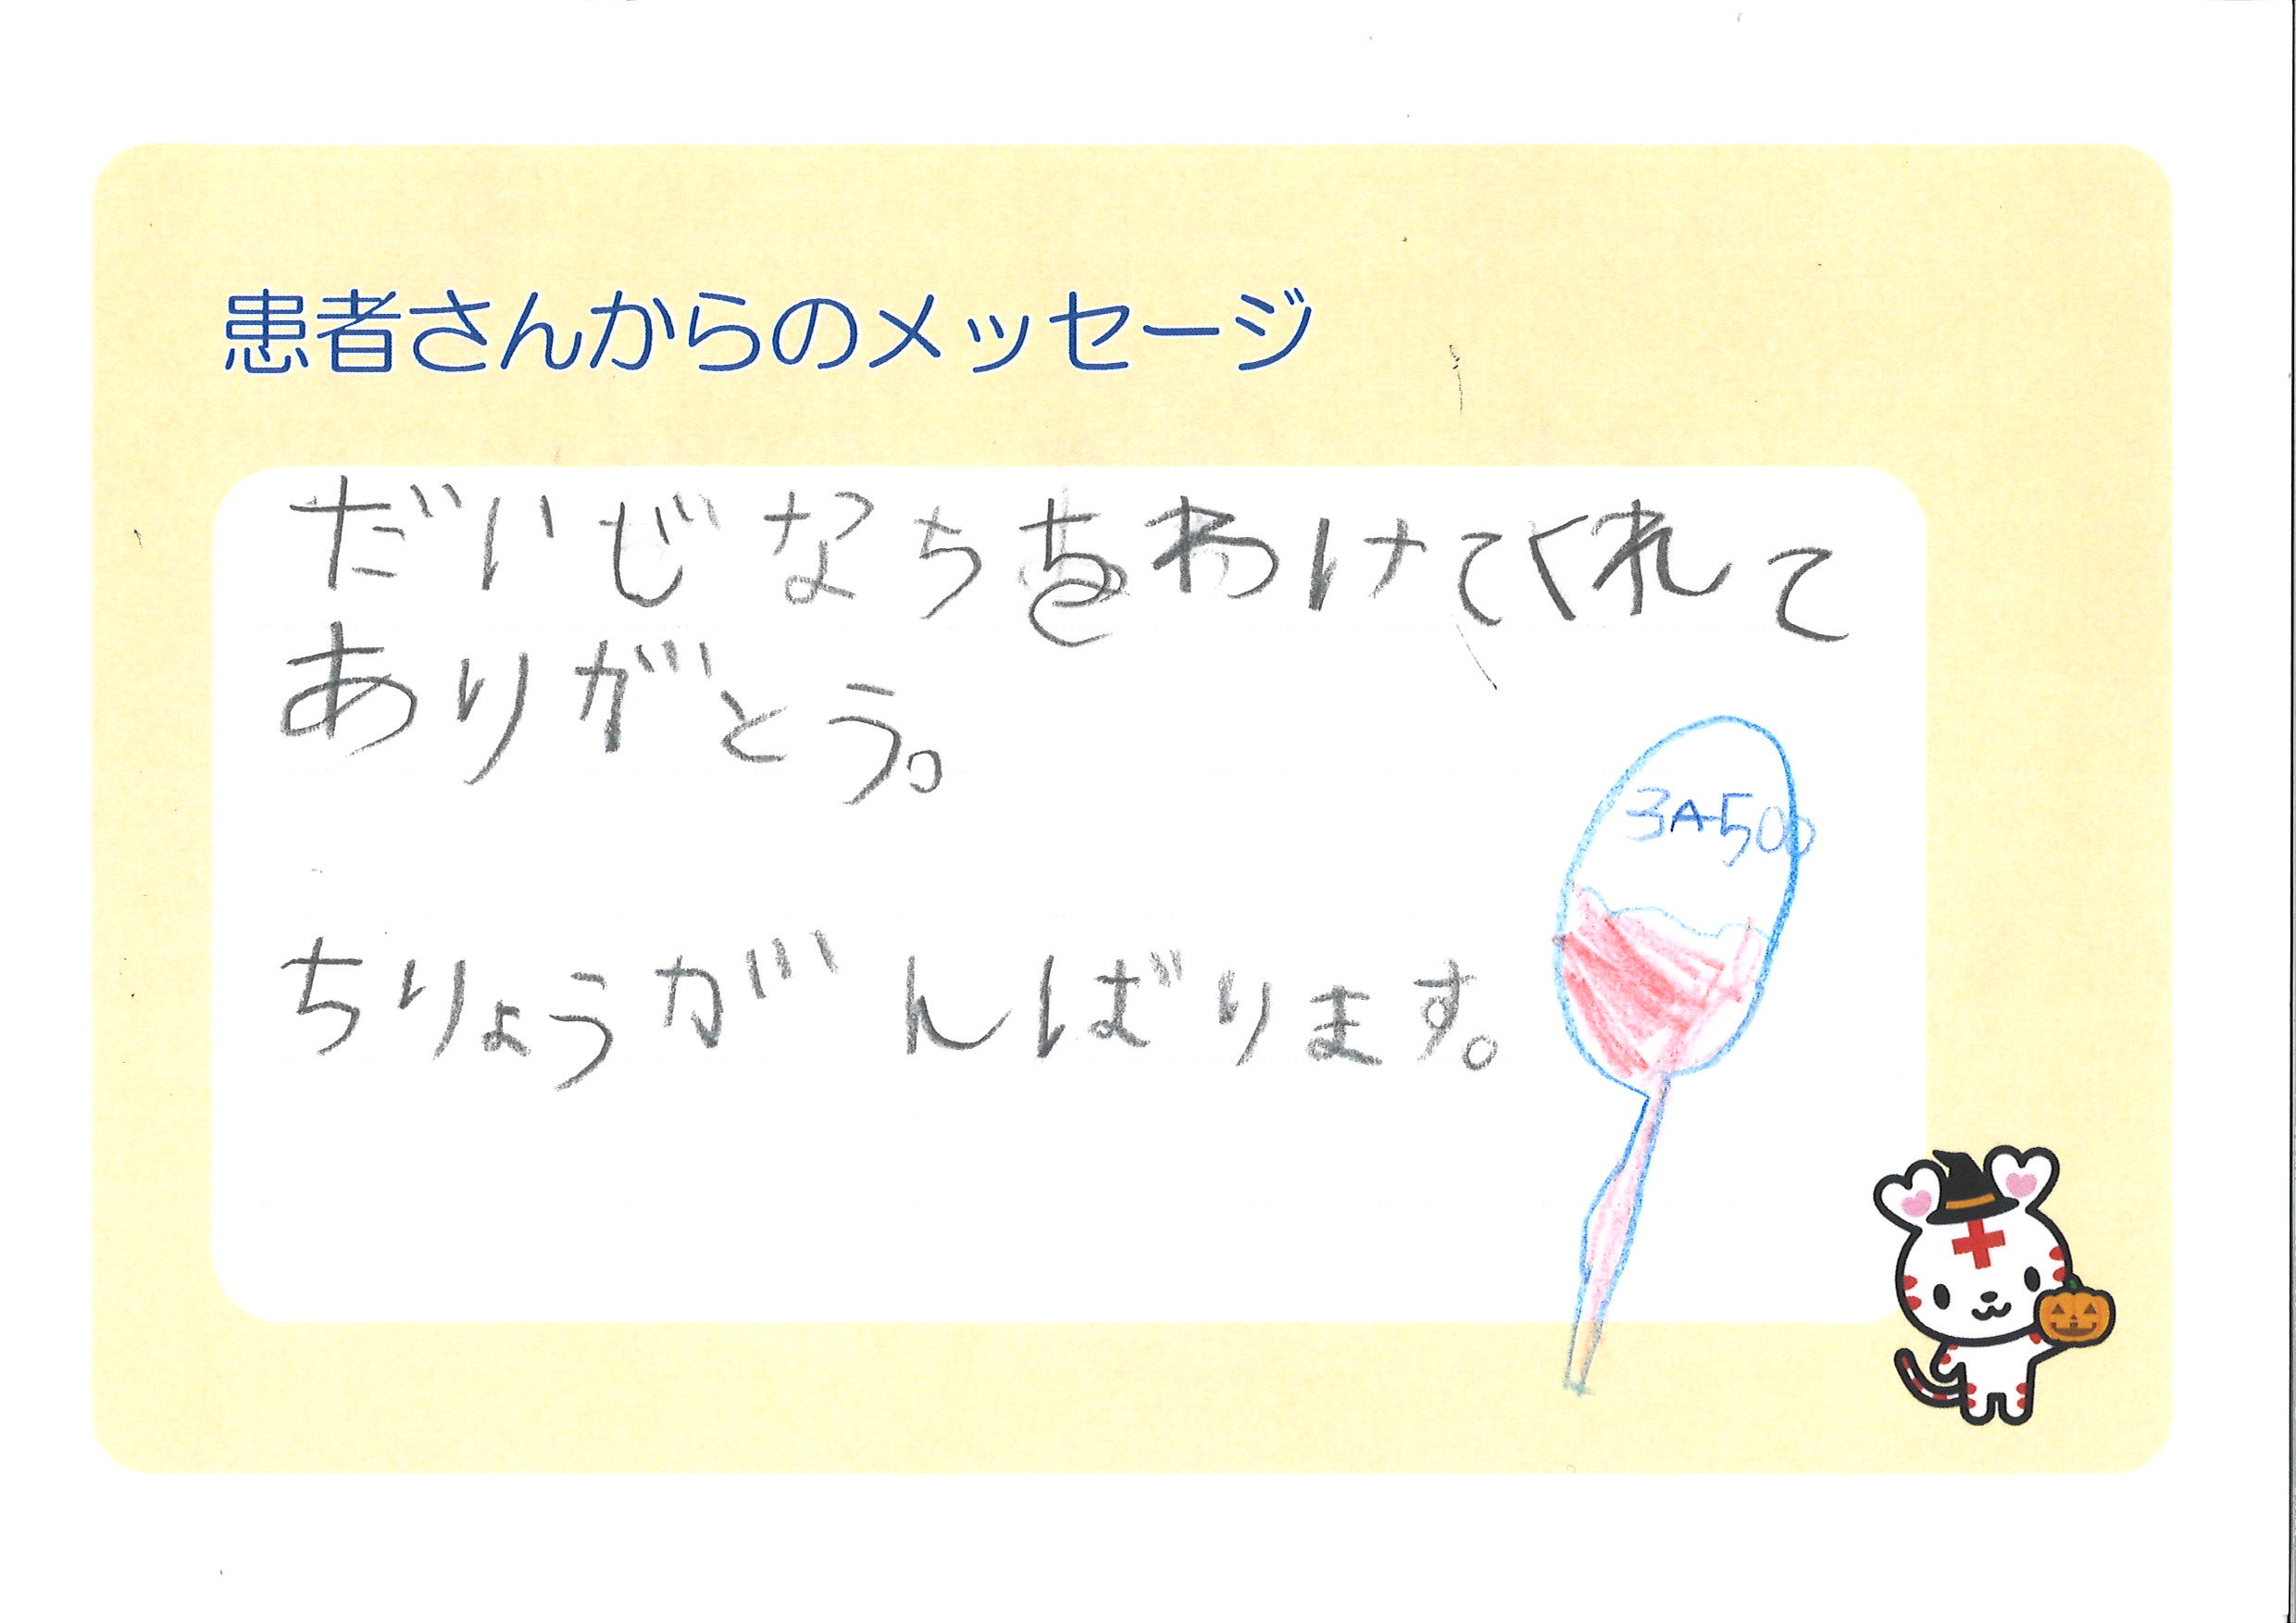 患者さんからのメッセージ
だいじなちをわけてくれて
ありがとう。
3A500
ちりょうがんばります。